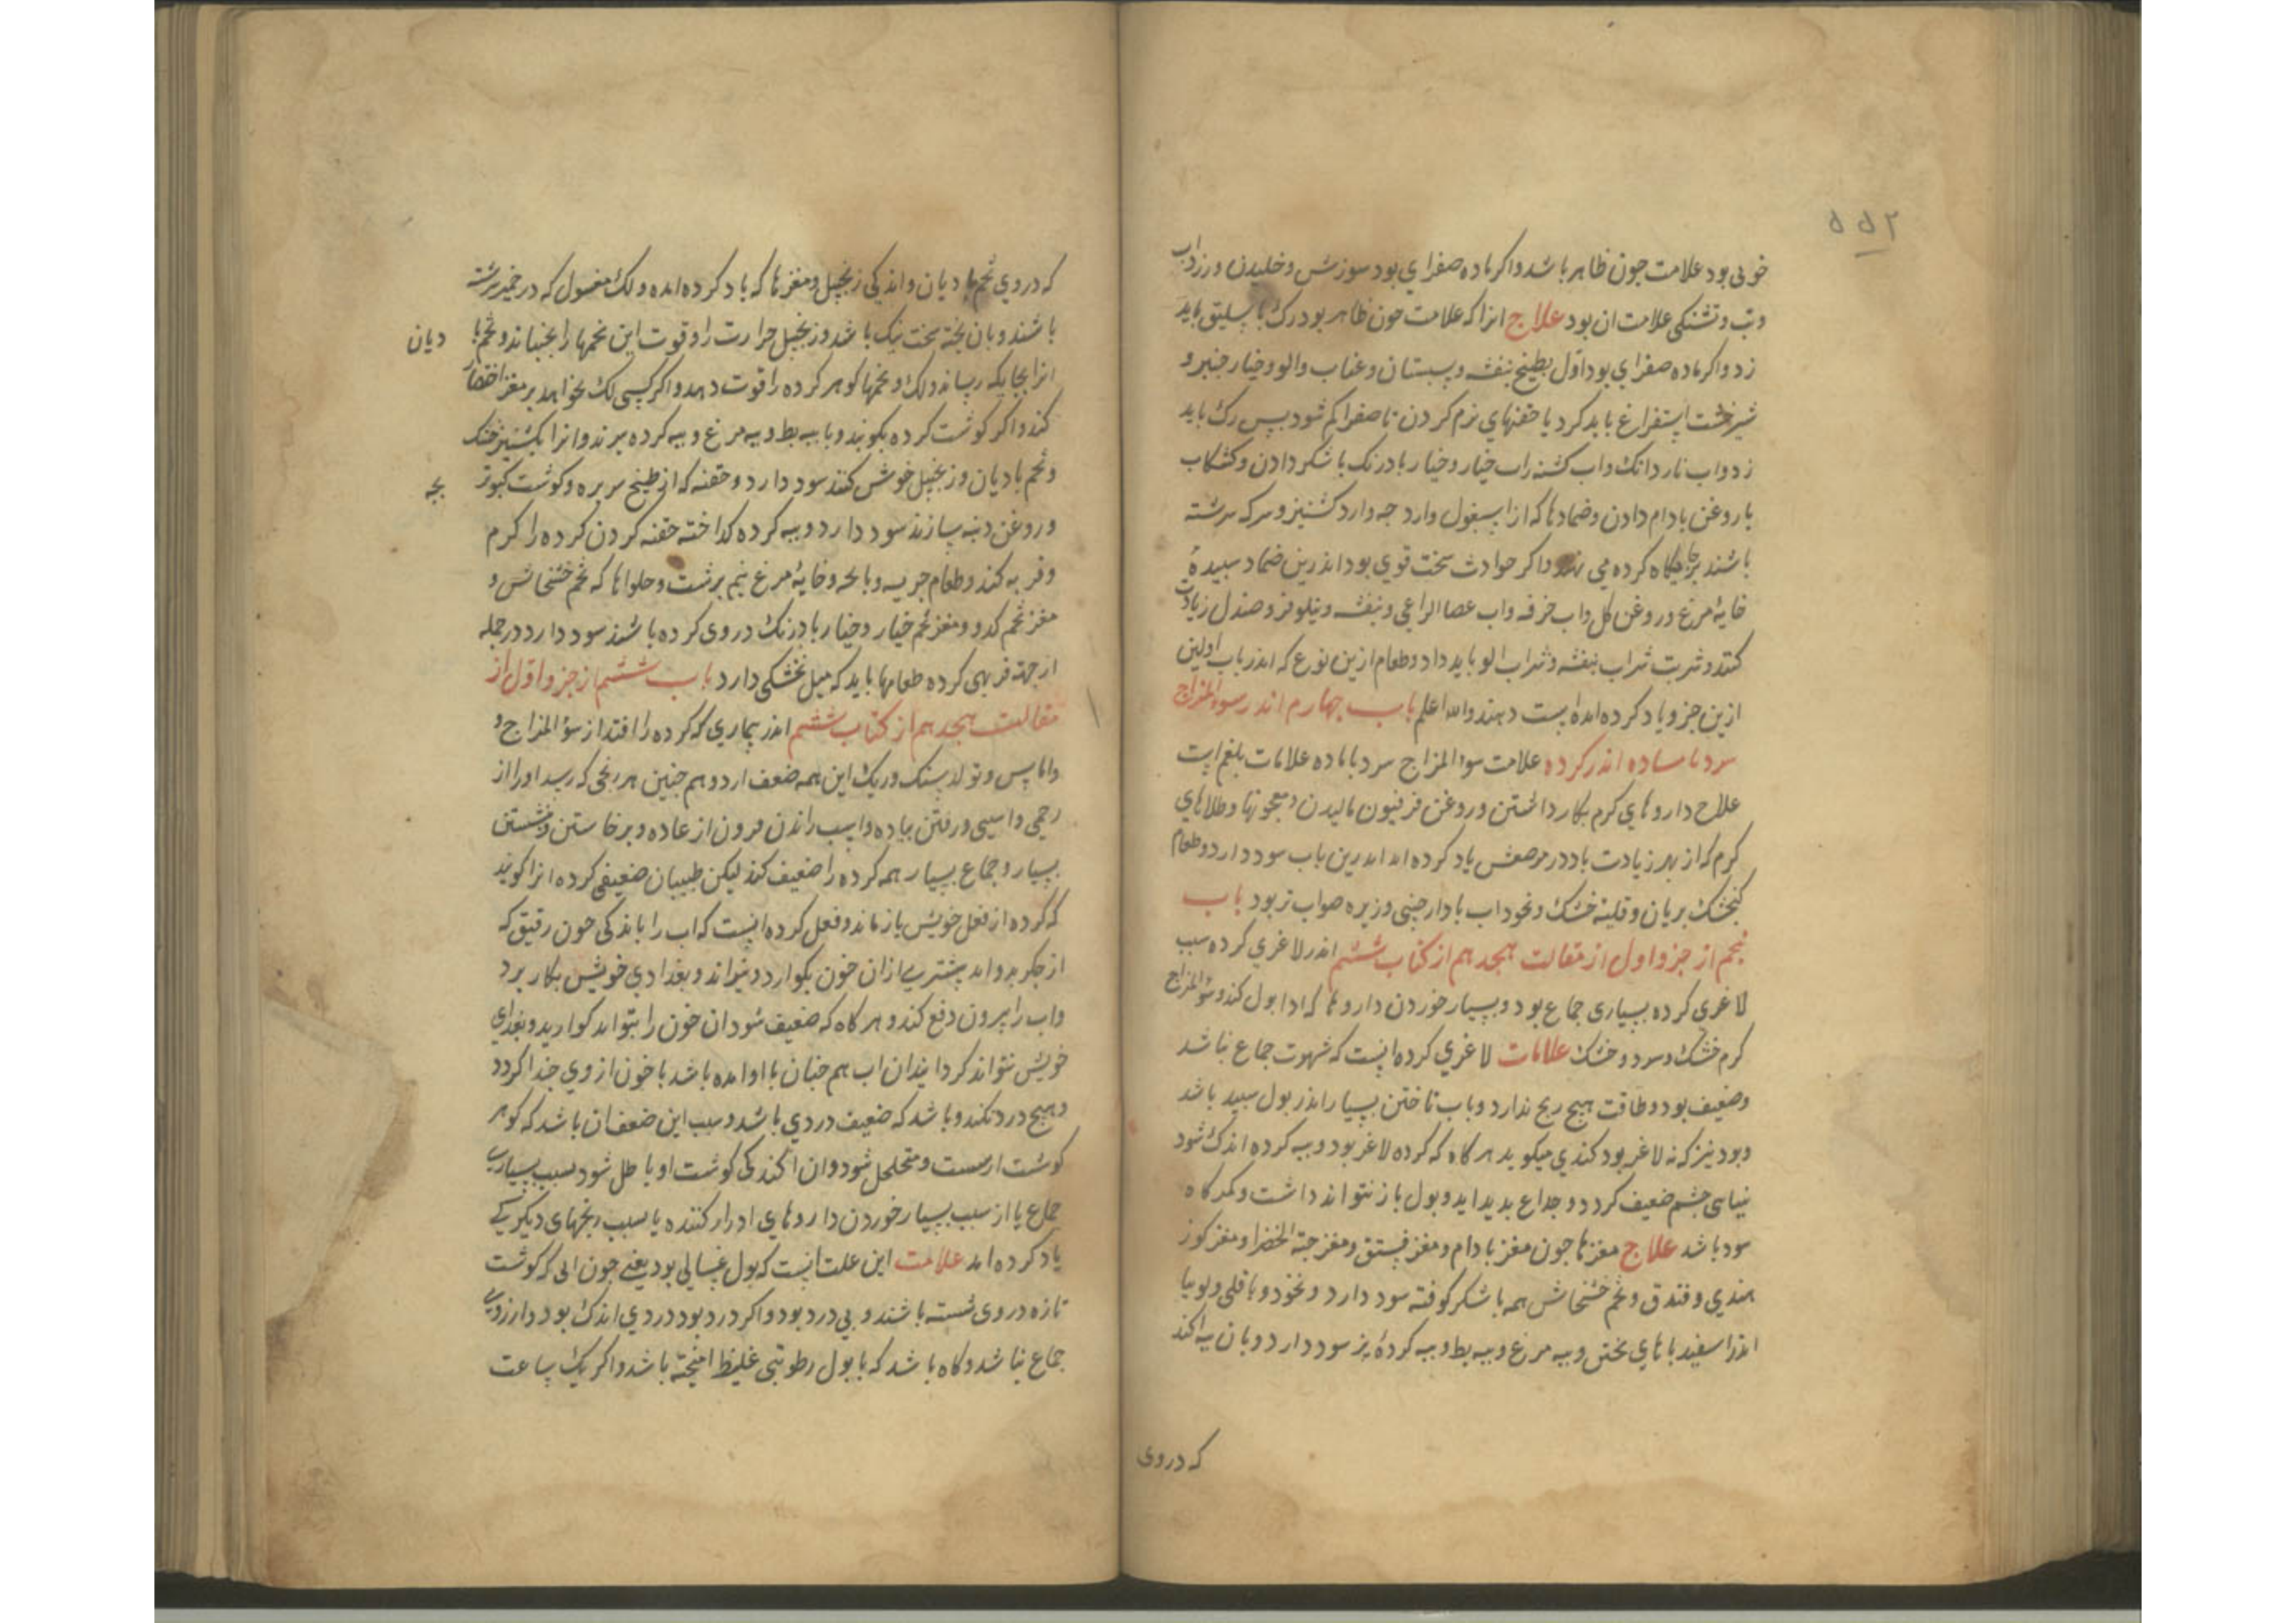 ۵۵۲
خونی بود علامت خون ظاهر باشد واکر ماده صفرای بود سوزش وخلیدن وزرداب
وتب وتشنکی علامت ان بود علاج انرا که علامت خون ظاهر بود رک باسلیق باید
زد واکر ماده صفرای بود اول بطبیخ بنفشه وسبستان وعناب والو وخیارجنبر و
شیرخشت استفراغ باید کرد یا حقنهای نرم کردن تا صفرا کم شود بس رک باید
زد واب ناردانک واب کشنه راب خیار وخیار بادرنک با شکر دادن وکشکاب
با روغن بادام دادن وضمادها که از اسبغول وارد جو وارد کشنیز وسرکه سرشته
باشند برجایکاه کرده می نهند واکر حوادث سخت قوی بود اندرین ضماد سبیدهٔ
خایهٔ مرغ وروغن کل واب خرفه واب عصا الراعی وبنفشه ونیلوفر وصندل زیادت
کنند وشربت شراب بنفشه وشراب الو باید داد وطعام ازین نوع که اندر باب اولین
ازین جزو یاد کرده امده است دهند والله اعلم باب جهارم اندر سوء المزاج
سرد با ماده اندر کرده علامت سوء المزاج سرد با ماده علامات بلغم است
علاج داروهای کرم بکار داشتن وروغن فرفیون مالیدن ومعجونها وطلاهای
کرم که از بهر زیادت باه در موضعش یاد کرده اند اندرین باب سود دارد وطعام
کنجشک بریان وقلیه خشک ونخوداب با دارجینی وزیره صواب تر بود باب
بنجم از جزو اول از مقالت هجدهم از کتاب ششم اندر لاغری کرده سبب
لاغری کرده بسیاری جماع بود وبسیار خوردن داروها که ادرار بول کند وسوء المزاج
کرم خشک وسرد وخشک علامات لاغری کرده انست که شهوت جماع نباشد
وضعیف بود وطاقت هیج رنج ندارد وباب تاختن بسیار اندر بول سبید باشد
وبود نیز که نه لاغر بود کندی میکوید هرکاه که کرده لاغر بود وبیه کرده اندک شود
بینای جشم ضعیف کردد وصداع بدید اید وبول باز نتواند داشت وکمرکاه
سود باشد علاج مغزها جون مغز بادام ومغز فستق ومغز حبة الخضرا ومغز کوز
هندی وفندق وتخم خشخاش همه با شکر کوفته سود دارد ونخود وباقلی ولوبیا
اندر اسفیدباهای بختن وبیه مرغ وبیه بط وبیه کردهٔ بز سود دارد وبان براکند
که دروی
که دروی تخم بادیان واندکی زنجبیل ومغزها که یاد کرده امده ولک مغسول که در خمیر سرشته
باشند وبان بخته سخت نیک باشد وزنجبیل حرارت را وقوت این تخمها را بجنباند وتخم با دیان
انرا بجایکه رساند ولک وتخمها کوهر کرده را قوت دهد واکر کسی لک نخواهد بر مغز اختصار
کند واکر کوشت کرده بکوبند وبا بیه بط وبیه مرغ وبیه کرده ببرند وانرا بکشنیز خشک
وتخم بادیان وزنجبیل خوش کنند سود دارد وحقنه که از طبیخ سر بره وکوشت کبوتر بجه
وروغن دنبه سازند سود دارد وبیه کرده کداخته حقنه کردن کرده را کرم
وفربه کند وطعام جریسه وباکه وخایهٔ مرغ نیم برشت وحلواها که تخم خشخاش و
مغز تخم کدو ومغز تخم خیار وخیار بادرنک دروی کرده باشند سود دارد در جمله
از جهة فربهی کرده طعامها باید که میل بخشکی دارد باب ششم از جزو اول از
مقالت هجدهم از کتاب ششم اندر بیماری که کرده را افتد از سوء المزاج و
واماس وتولد سنک وریک این همه ضعف ارد وهم جنین هر رنجی که رسد او را از
زخمی واسیبی ورفتن بیاده واسب راندن برون از عاده وبرخاستن ونشستن
بسیار وجماع بسیار همه کرده را ضعیف کند لیکن طبیبان ضعیفی کرده انرا کویند
که کرده از فعل خویش باز ماند وفعل کرده انست که اب را با اندکی خون رقیق که
از جکر بدو اید بیشتری ازان خون بکوارد وبتواند وبغدادی خویش بکار برد
واب را بیرون دفع کند وهرکاه که ضعیف شود ان خون را نتواند کوارید وبغدای
خویش نتواند کردانیدن ان اب هم جنان با او امده باشد با خون از وی جدا کردد
وهیج درد نکند وباشد که ضعیف دردی باشد وسبب این ضعف ان باشد که کوهر
کوشت او سست ومتخلخل شود وان اکندکی کوشت او باطل شود بسبب بسیاری
جماع یا از سبب بسیار خوردن داروهای ادرار کننده یا بسبب رنجهای دیکر که
یاد کرده امد علامت این علت انست که بول غسالی بود یعنی جون ابی که کوشت
تازه دروی شسته باشند وبی درد بود واکر درد بود دردی اندک بود وارزوی
جماع نباشد وکاه باشد که با بول رطوبتی غلیظ امیخته باشد واکر یک ساعت